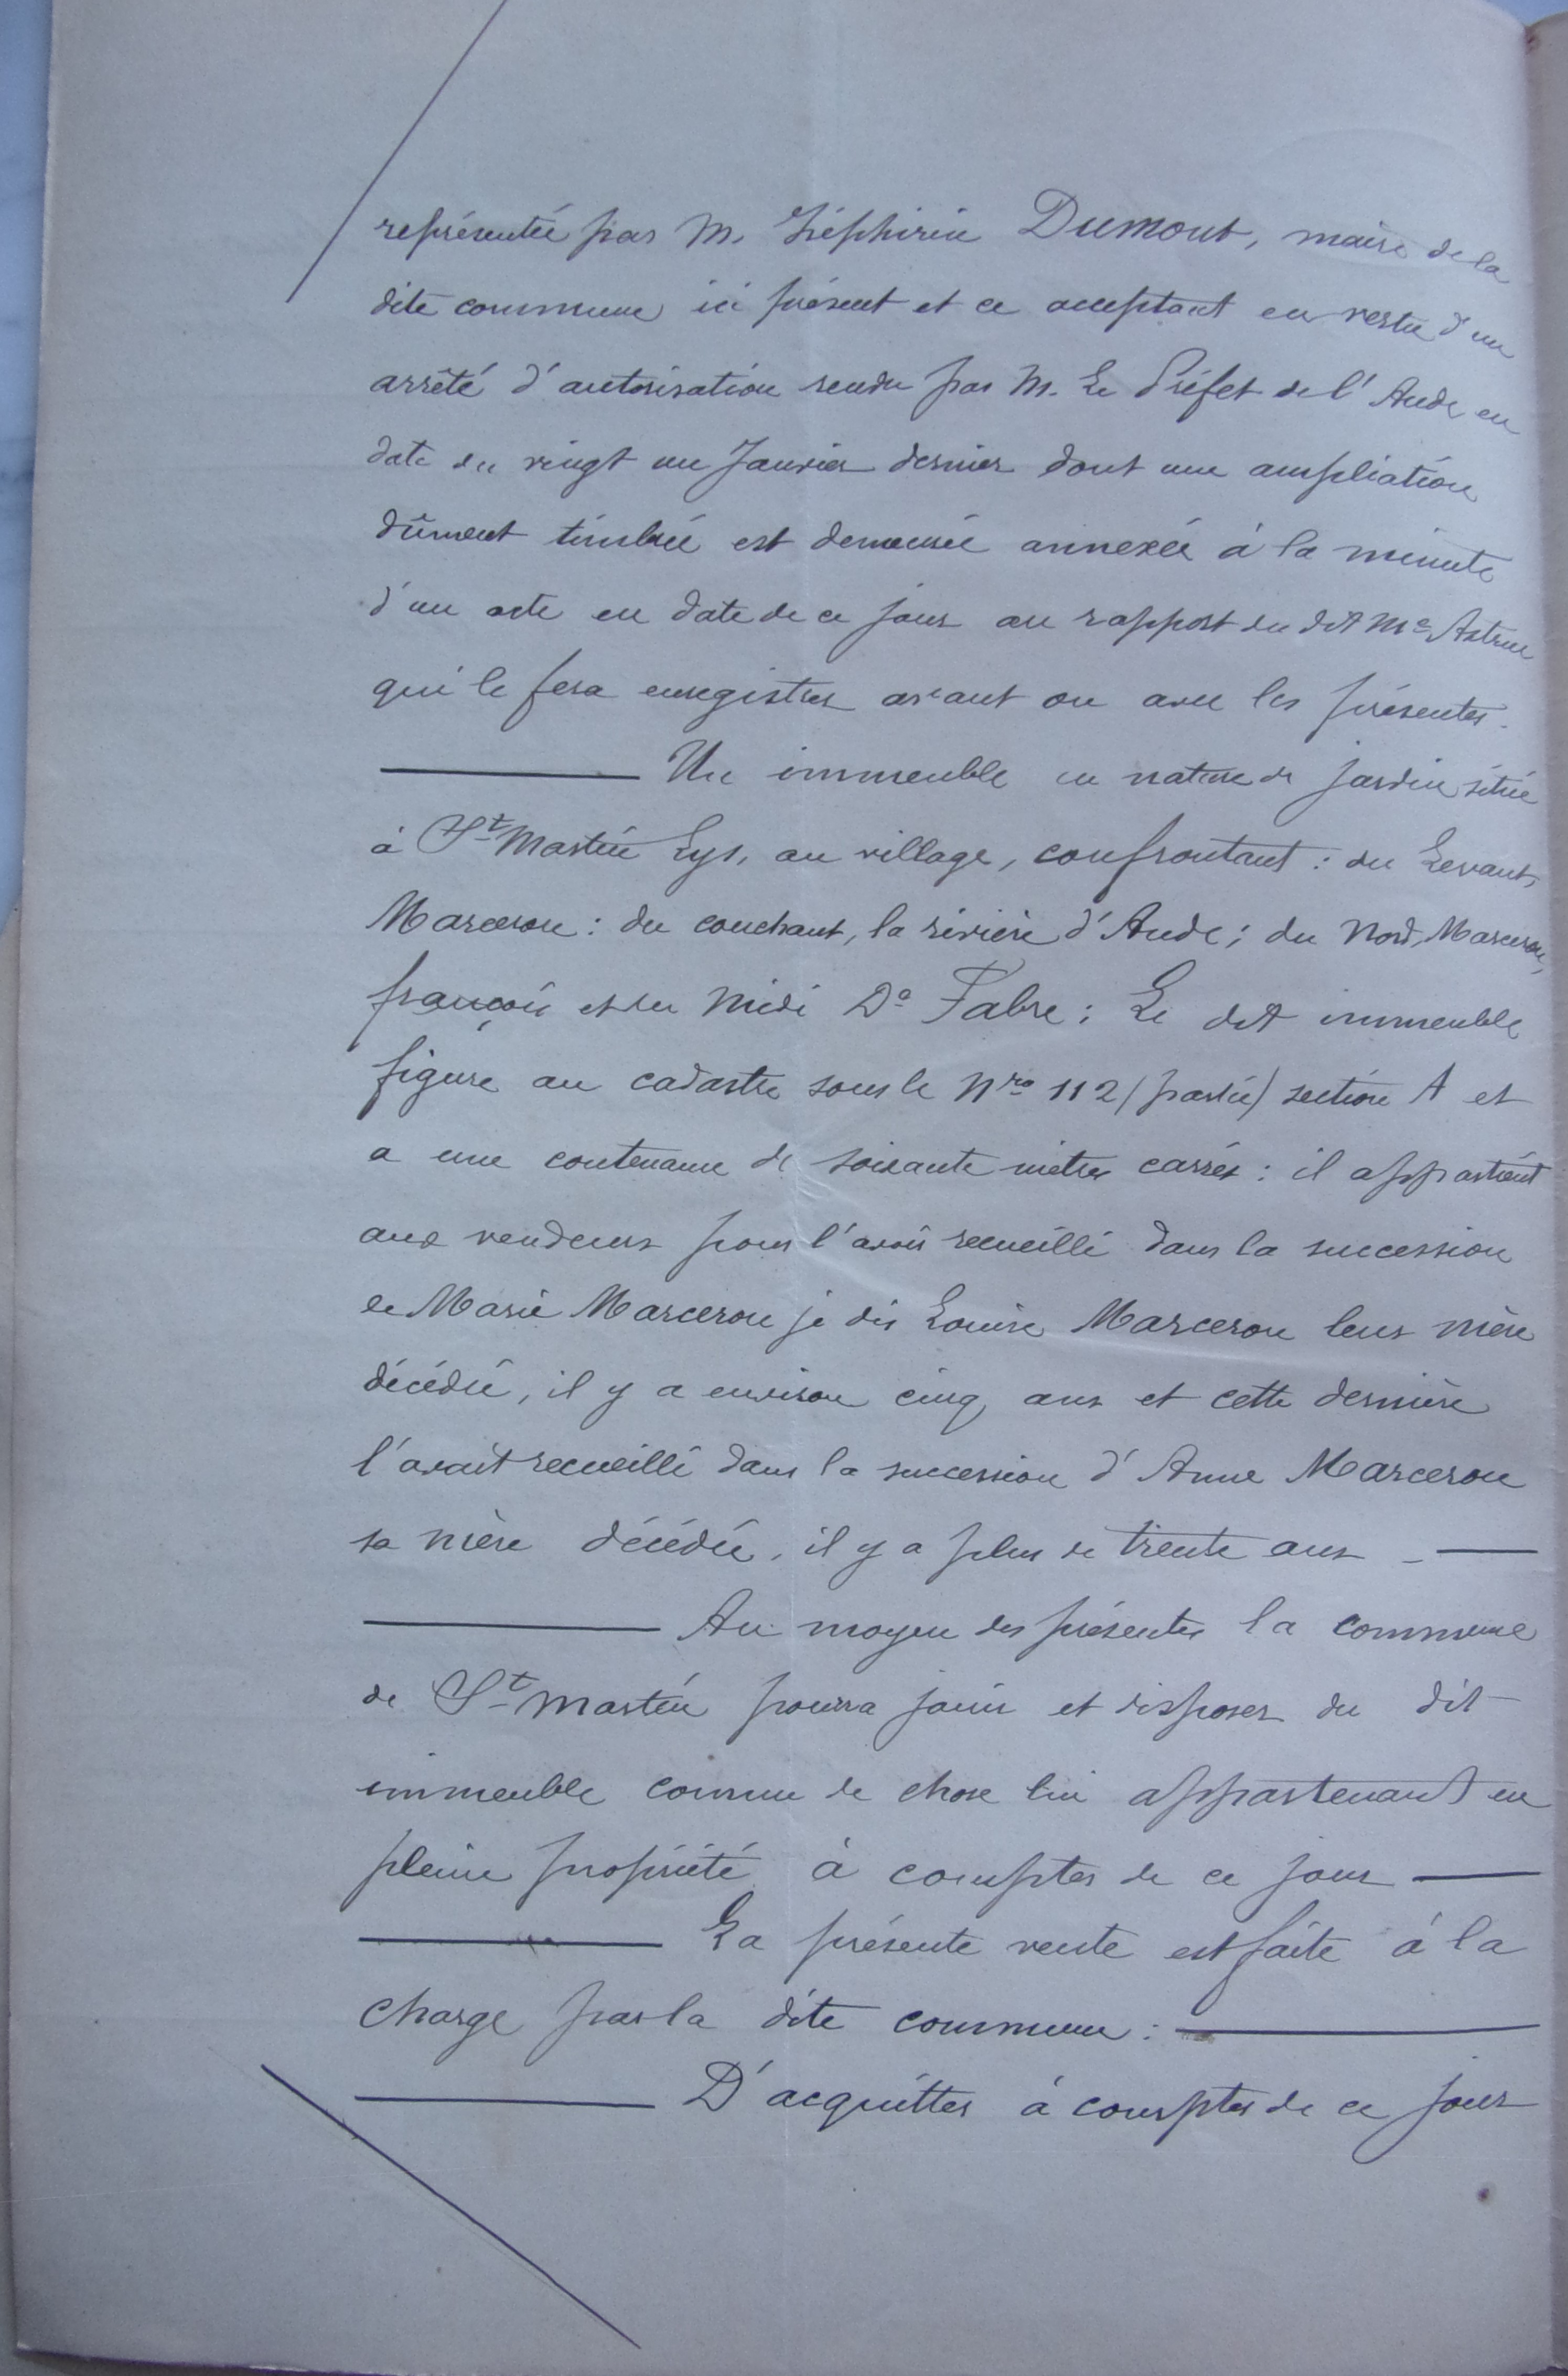 représentée par M. Zéphirin Dumont, maire de la
dite commune ici présent et ce acceptant en vertu d'un
arrêté d'autorisation rendu par M. Le Préfet de l'Aude en
date du vingt un Janvier dernier dont une ampliation
dûment timbrée est demeurée annexée à la minute
d'un acte en date de ce jour au rapport du dit Me Astruc
qui le fera enregistrer avant ou avec les présentes.
Un immeuble en nature de jardin situé
à St Martin Lys, au village, confrontant : du Levant,
Marceron : du couchant, la rivière d'Aude ; du Nord, Marceron,
françois et du Midi Do Fabre ; Le dit immeuble
figure au cadastre sous le Nro 112 (partie) section A et
a une contenance de soixante mètres carrés : il appartient
aux vendeurs pour l'avoir recueilli dans la succession
de Marie Marceron je dis Louise Marceron leur mère
décédée, il y a environ cinq ans et cette dernière
l'avait recueilli dans la succession d'Anne Marceron
sa mère décédée, il y a plus de trente ans
Au moyen des présentes la commune
de St Martin pourra jouir et disposer du dit
immeuble comme de chose lui appartenant en
pleine propriété à compter de ce jour
La présente vente est faite à la
charge par la dite commune :
D'acquitter à compter de ce jour